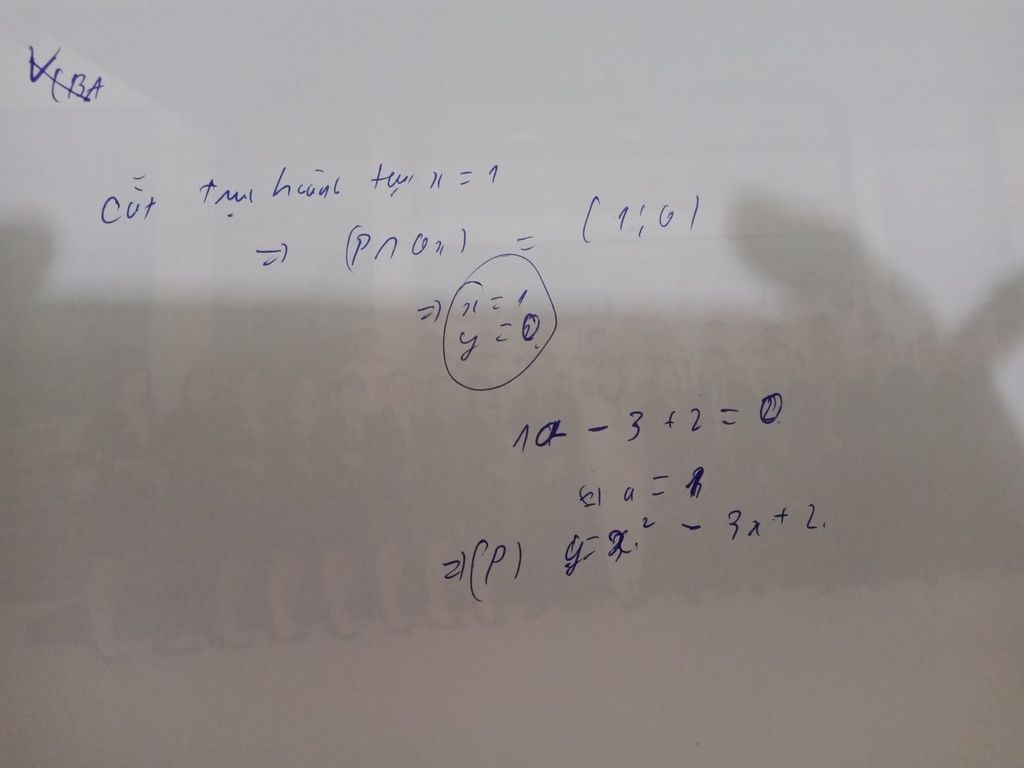 Cắt trục hoành tại x = 1
=> (P ∩ Ox) = (1; 0)
=> x = 1
y = 0
1a - 3 + 2 = 0
<=> a = 1
=> (P) y = x² - 3x + 2.